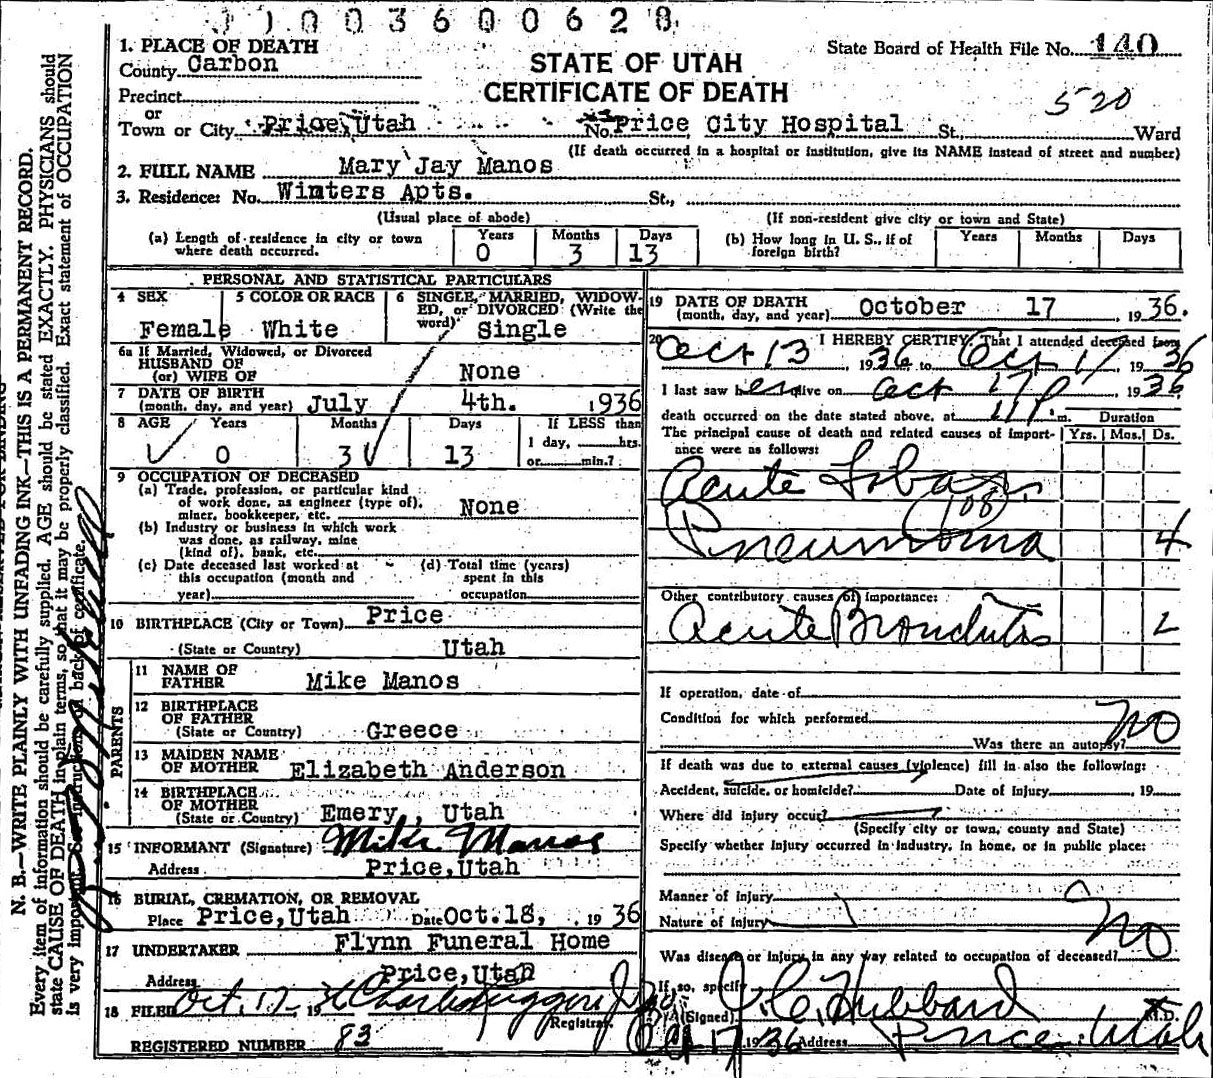 1003600628
1. PLACE OF DEATH
County Carbon
STATE OF UTAH
CERTIFICATE OF DEATH
State Board of Health File No. 140
520
Precinct
or
Town or City Price, Utah No. Price City Hospital St. Ward
(If death occurred in a hospital or institution, give its NAME instead of street and number)
2. FULL NAME Mary Jay Manos
3. Residence: No. Winters Apts. St.,
(Usual place of abode) (If non-resident give city or town and State)
(a) Length of residence in city or town where death occurred. Years 0 Months 3 Days 13
(b) How long in U. S., if of foreign birth? Years Months Days
PERSONAL AND STATISTICAL PARTICULARS
4 SEX Female
5 COLOR OR RACE White
6 SINGLE, MARRIED, WIDOWED, or DIVORCED (Write the word) Single
6a If Married, Widowed, or Divorced
HUSBAND OF
(or) WIFE OF None
7 DATE OF BIRTH
(month, day, and year) July 4th. 1936
8 AGE Years 0 Months 3 Days 13 If LESS than
1 day, hrs.
or min.?
9 OCCUPATION OF DECEASED
(a) Trade, profession, or particular kind
of work done, as engineer (type of),
miner, bookkeeper, etc. None
(b) Industry or business in which work
was done, as railway, mine
(kind of), bank, etc.
(c) Date deceased last worked at
this occupation (month and
year)
(d) Total time (years)
spent in this
occupation
10 BIRTHPLACE (City or Town) Price
(State or Country) Utah
PARENTS
11 NAME OF
FATHER Mike Manos
12 BIRTHPLACE
OF FATHER
(State or Country) Greece
13 MAIDEN NAME
OF MOTHER Elizabeth Anderson
14 BIRTHPLACE
OF MOTHER
(State or Country) Emery, Utah
15 INFORMANT (Signature) Mike Manos
Address Price, Utah
16 BURIAL, CREMATION, OR REMOVAL
Place Price, Utah Date Oct. 18, 1936
17 UNDERTAKER Flynn Funeral Home
Address Price, Utah
18 FILED Oct. 17 1936
Registrar.
REGISTERED NUMBER 83
19 DATE OF DEATH
(month, day, and year) October 17, 1936.
20 I HEREBY CERTIFY, That I attended deceased from
Oct 13 1936 to Oct 17 1936
I last saw her alive on Oct 17 1936
death occurred on the date stated above, at 11 P. m. Duration
The principal cause of death and related causes of importance were as follows: Yrs. Mos. Ds.
Acute Lobar
108
Pneumonia 4
Other contributory causes of importance:
Acute Bronchitis 2
If operation, date of
Condition for which performed
Was there an autopsy? No
If death was due to external causes (violence) fill in also the following:
Accident, suicide, or homicide? Date of injury 19
Where did injury occur?
(Specify city or town, county and State)
Specify whether injury occurred in industry, in home, or in public place:
Manner of injury
Nature of injury
Was disease or injury in any way related to occupation of deceased? No
If so, specify
(Signed) J. C. Hubbard M.D.
Oct 17 1936 Address Price, Utah
N. B.—WRITE PLAINLY WITH UNFADING INK—THIS IS A PERMANENT RECORD.
Every item of information should be carefully supplied. AGE should be stated EXACTLY. PHYSICIANS should
state CAUSE OF DEATH in plain terms, so that it may be properly classified. Exact statement of OCCUPATION
is very important. See instructions on back of certificate.